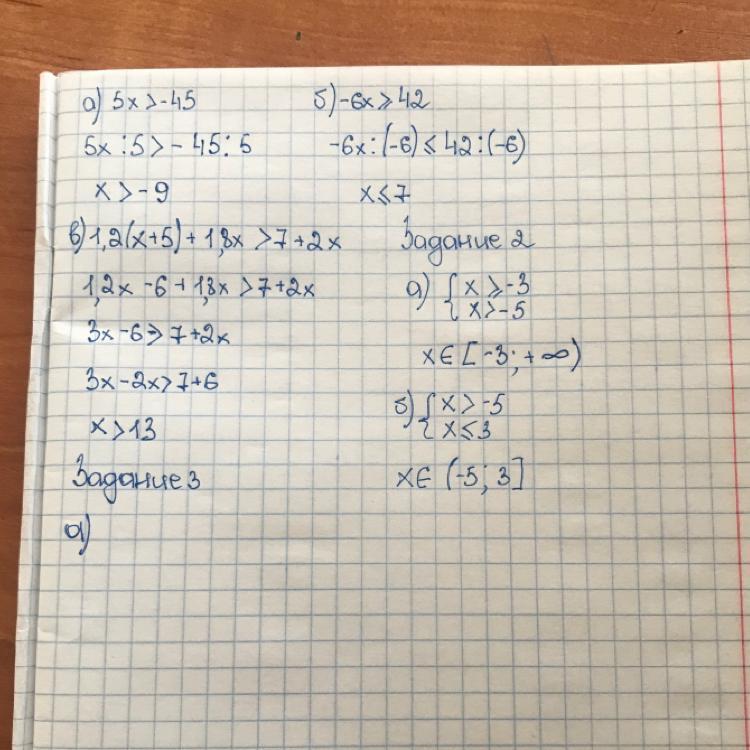 а) 5x > -45
5x : 5 > - 45 : 5
x > -9
б) -6x ⩾ 42
-6x : (-6) ⩽ 42 : (-6)
x ⩽ 7
в) 1,2(x+5) + 1,8x > 7 + 2x
1,2x - 6 + 1,8x > 7 + 2x
3x - 6 > 7 + 2x
3x - 2x > 7 + 6
x > 13
Задание 2
а) { x ⩾ -3
x > -5
x ∈ [-3; +∞)
б) { x > -5
x ⩽ 3
x ∈ (-5; 3]
Задание 3
а)